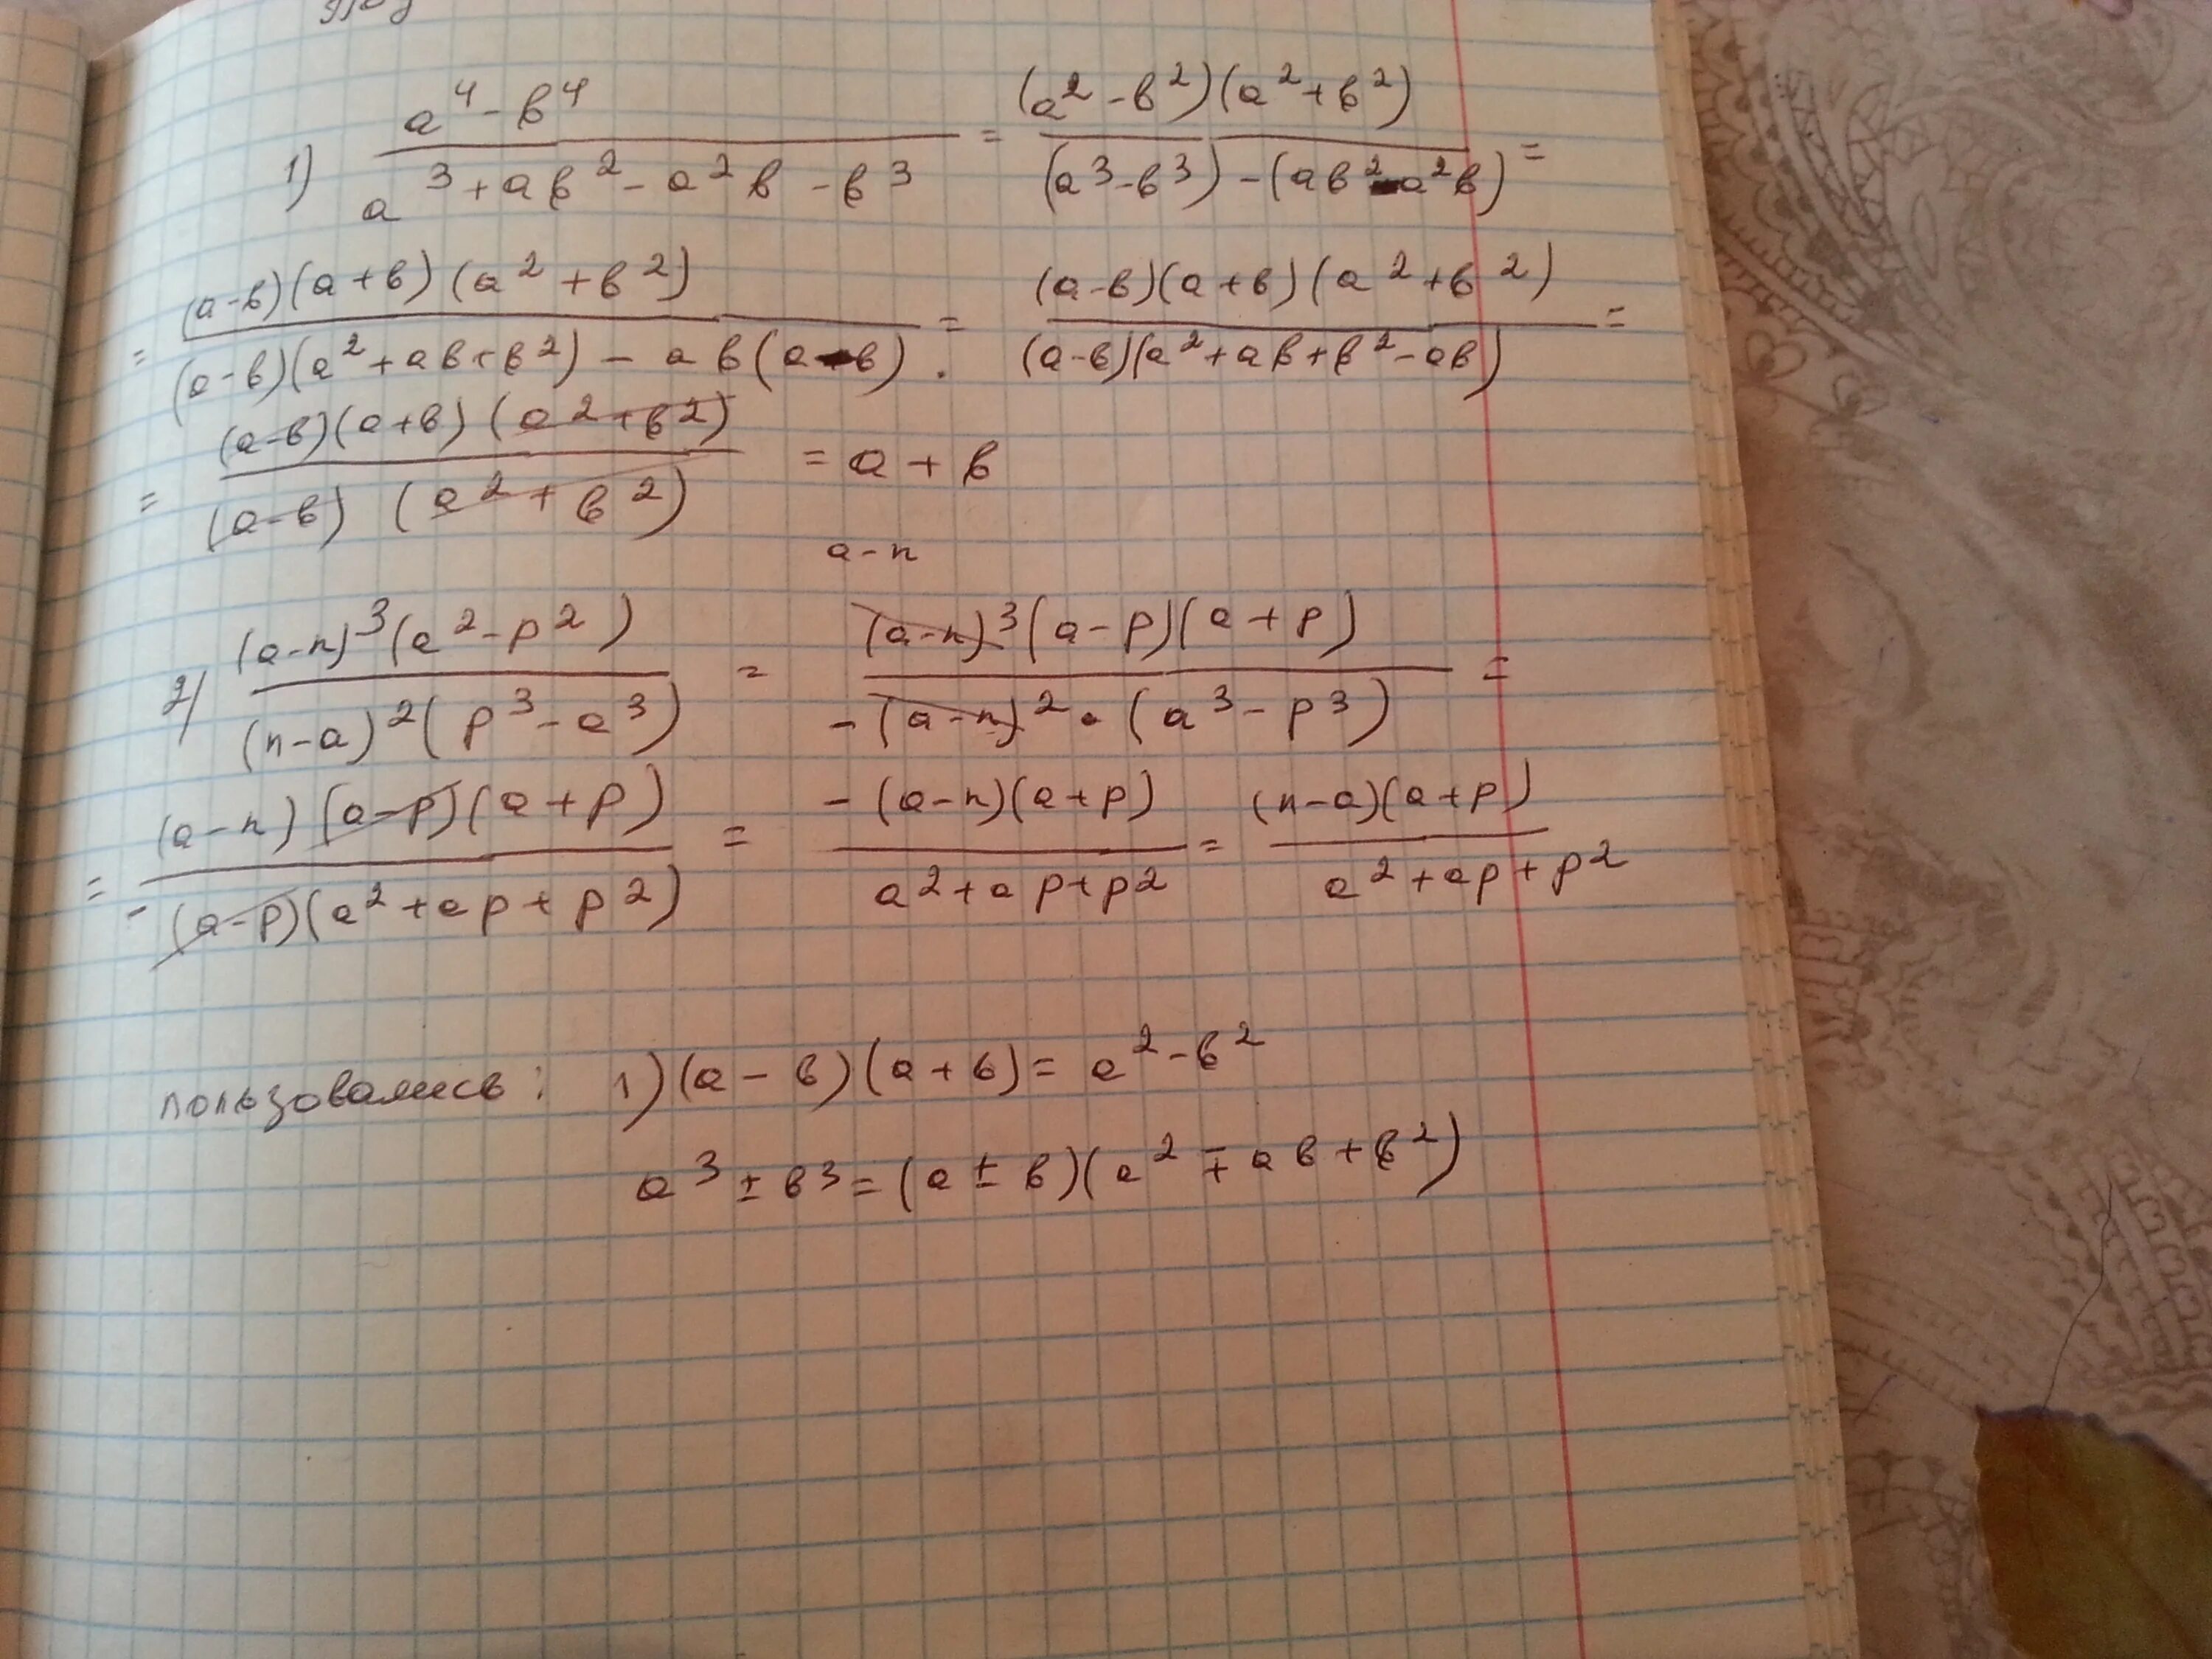 1) (a⁴-b⁴)/(a³+ab²-a²b-b³) = ((a²-b²)(a²+b²))/((a³-b³)-(ab²-a²b)) =
= ((a-b)(a+b)(a²+b²))/((a-b)(a²+ab+b²)-ab(a-b)) = ((a-b)(a+b)(a²+b²))/((a-b)(a²+ab+b²-ab)) =
= ((a-b)(a+b)(a²+b²))/((a-b)(a²+b²)) = a+b
a-n
2) ((a-n)³(a²-p²))/((n-a)²(p³-a³)) = ((a-n)³(a-p)(a+p))/(-(a-n)²·(a³-p³)) =
= ((a-n)(a-p)(a+p))/(-(a-p)(a²+ap+p²)) = (-(a-n)(a+p))/(a²+ap+p²) = ((n-a)(a+p))/(a²+ap+p²)
пользовались: 1) (a-b)(a+b)=a²-b²
a³±b³=(a±b)(a²∓ab+b²)